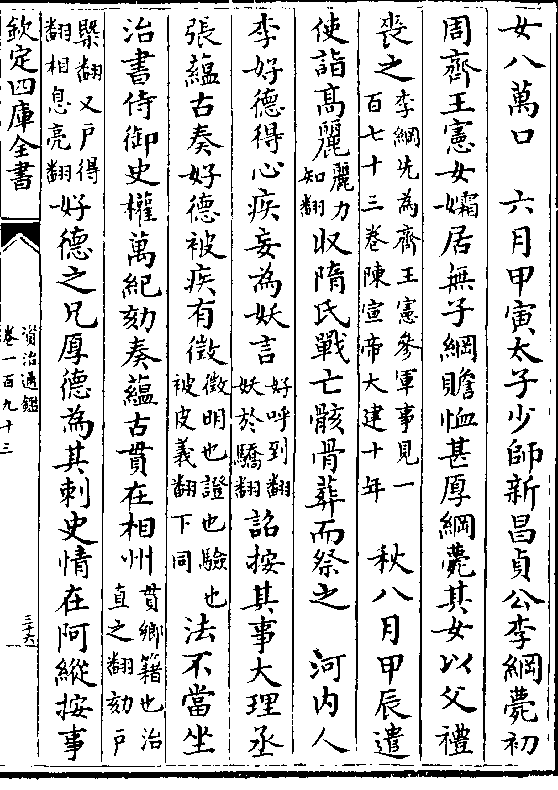 女八萬口　六月甲寅太子少師新昌貞公李綱薨初
周齊王憲女孀居無子綱贍恤甚厚綱薨其女以父禮
喪之李綱先為齊王憲參軍事見一百七十三卷陳宣帝大建十年　秋八月甲辰遣
使詣高麗麗力知翻收隋氏戰亡骸骨葬而祭之　河内人
李好德得心疾妄為妖言好呼到翻妖於驕翻詔按其事大理丞
張蘊古奏好德被疾有徵徵明也證也驗也被皮義翻下同法不當坐
治書侍御史權萬紀劾奏蘊古貫在相州貫鄉籍也治直之翻劾戶
槩翻又戶得翻相息亮翻好德之兄厚德為其刺史情在阿縱按事
欽定四庫全書
資治通鑑
卷一百九十三
三十六